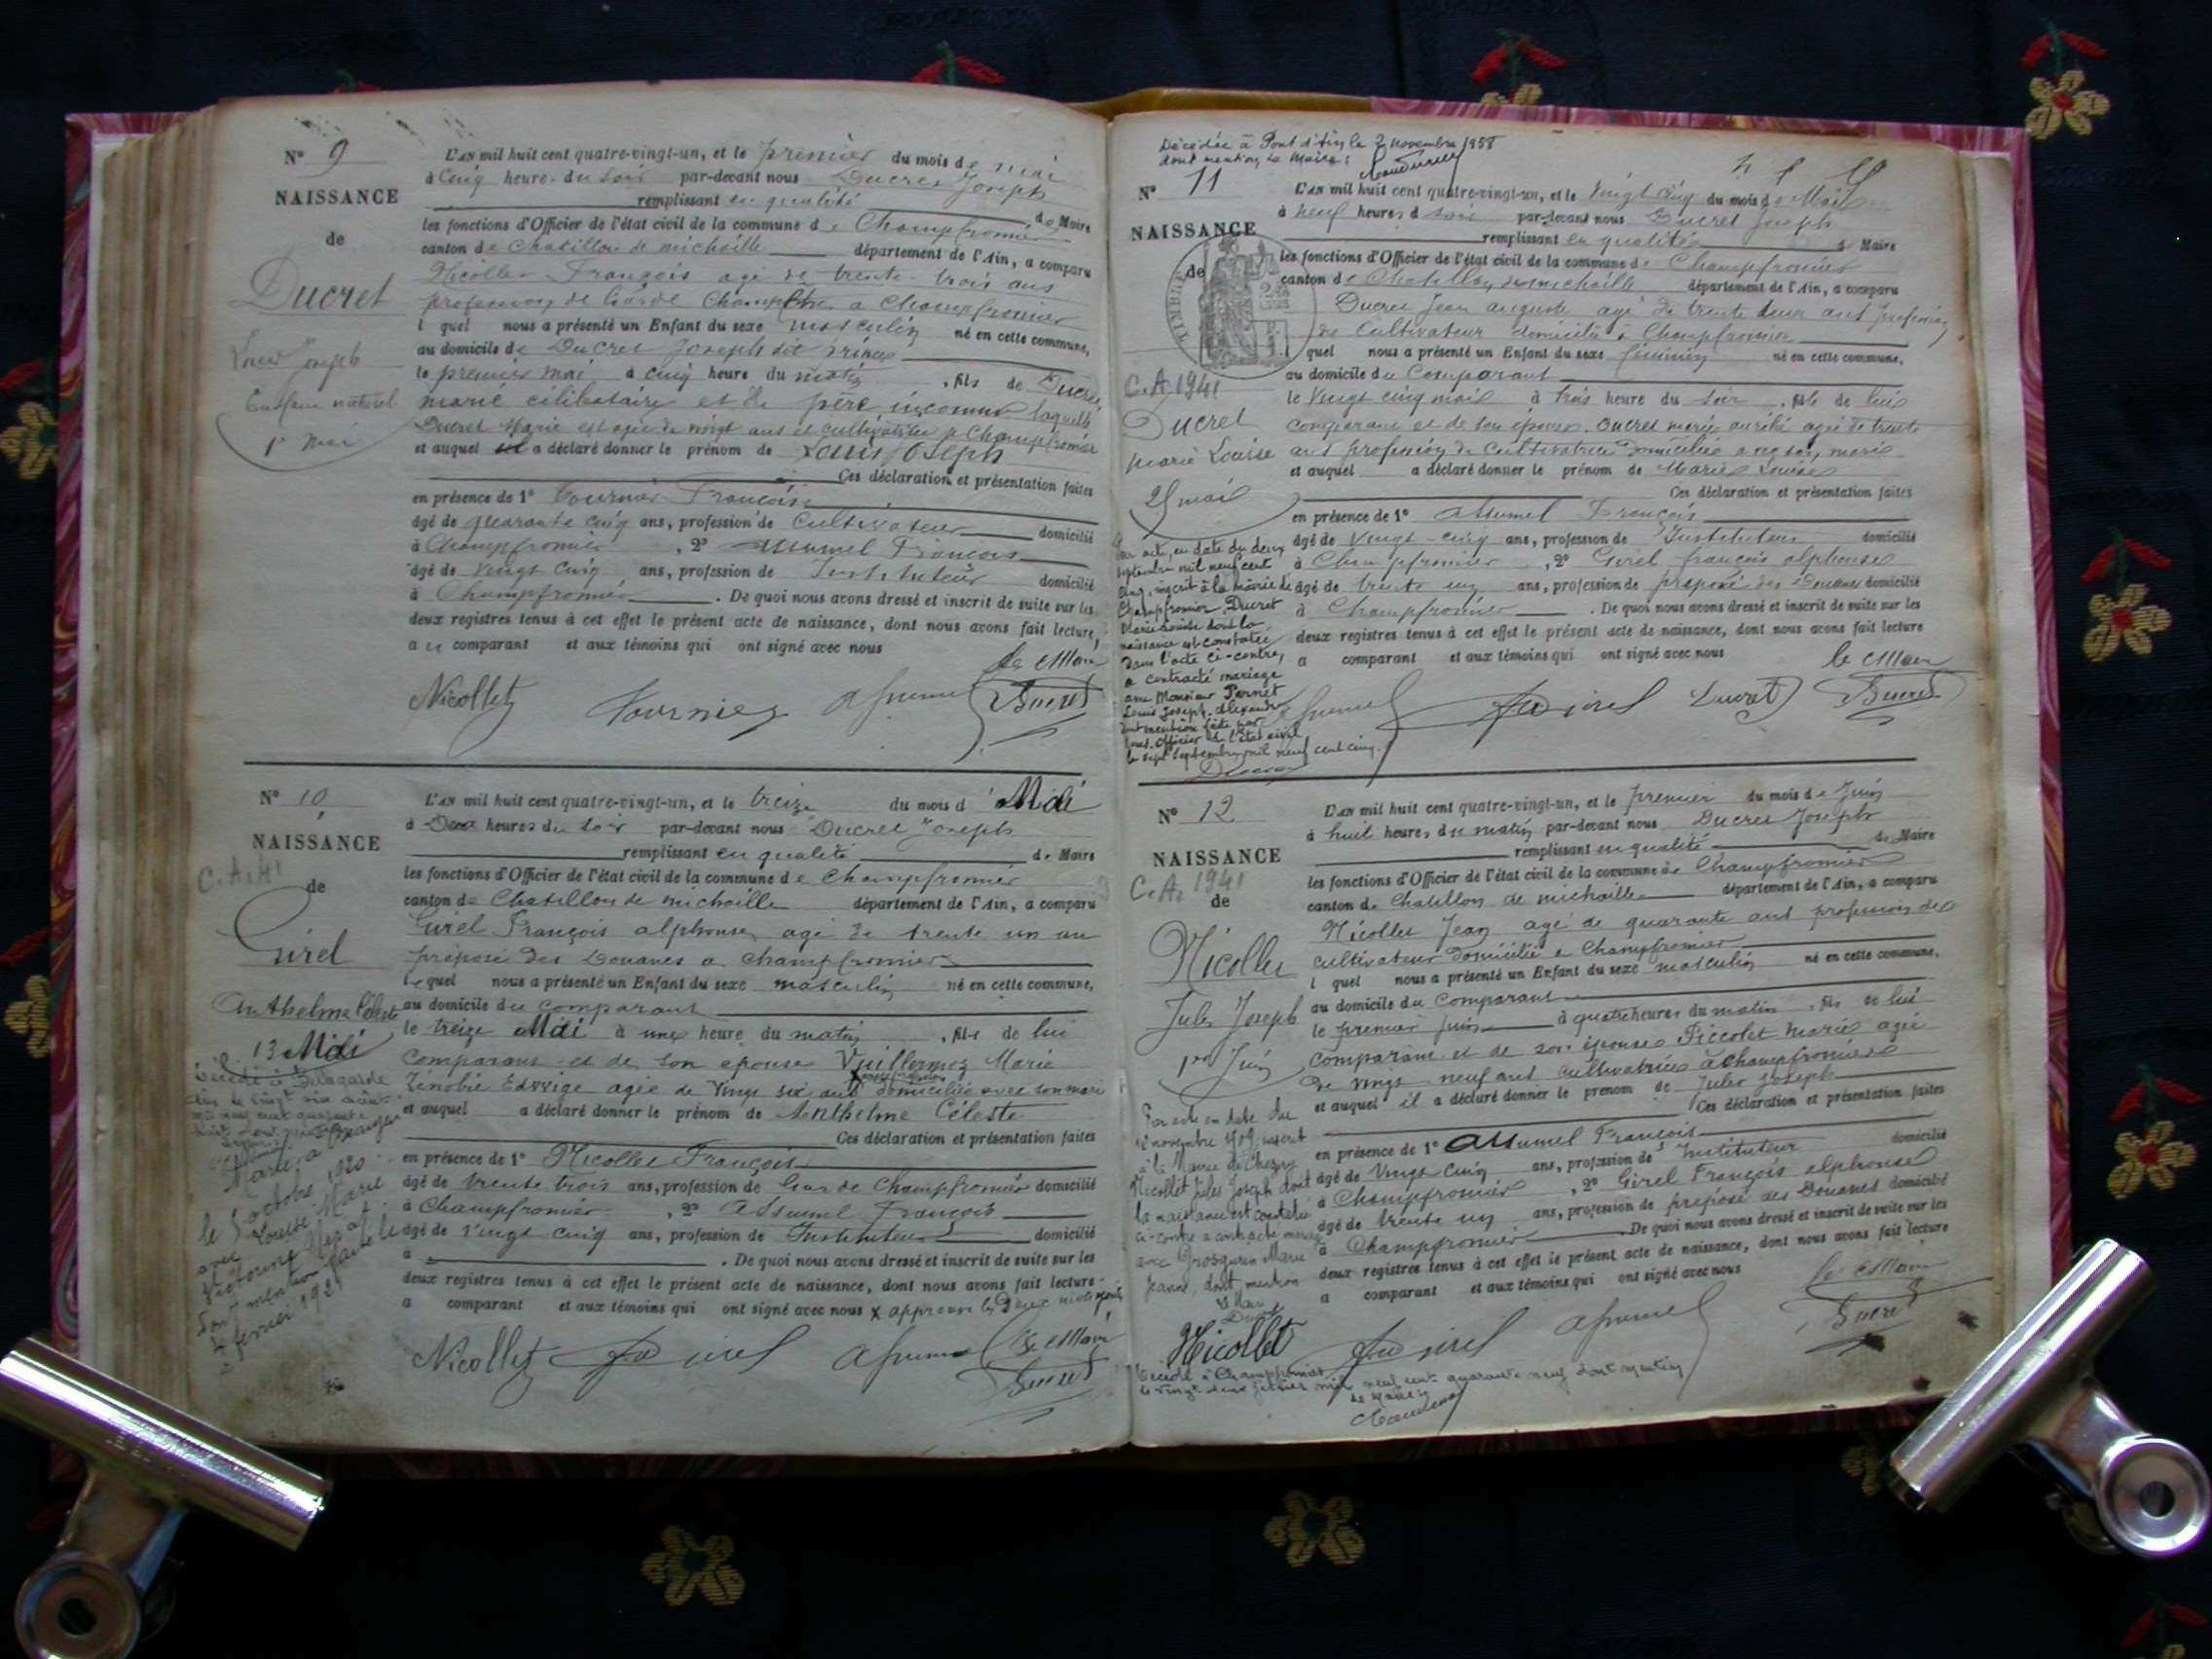 N° 9
NAISSANCE
de
Ducret
Louis Joseph
Enfant naturel
1er Mai
L'AN mil huit cent quatre-vingt-un, et le premier du mois de mai
à Cinq heure du soir par-devant nous Ducret Joseph
remplissant en qualité de Maire
les fonctions d'Officier de l'état civil de la commune de Champfromier
canton de Chatillon de michaille département de l'Ain, a comparu
Nicollet François agé de trente trois ans
profession de Garde Champêtre a Champfromier
l quel nous a présenté un Enfant du sexe masculin né en cette commune,
au domicile de Ducret Joseph dit prince
le premier mai à cinq heure du matin, fils de Ducret
marie célibataire et de père inconnu laquelle
Ducret Marie est agée de vingt ans et cultivatrice a Champfromier
et auquel il a déclaré donner le prénom de Louis Joseph
Ces déclaration et présentation faites
en présence de 1° Tournier François
âgé de quarante cinq ans, profession de Cultivateur domicilié
à Champfromier, 2° Assumel François
âgé de vingt cinq ans, profession de Instituteur domicilié
à Champfromier. De quoi nous avons dressé et inscrit de suite sur les
deux registres tenus à cet effet le présent acte de naissance, dont nous avons fait lecture,
au comparant et aux témoins qui ont signé avec nous
le Maire
Nicollet Tournier Assumel Ducret
N° 10
NAISSANCE
C.A.41
de
Girel
Anthelme Céleste
13 Mai
Marié à
le 5 octobre 1920
avec Louise Marie
Victorine
Dont mention faite le
4 février 1921
L'AN mil huit cent quatre-vingt-un, et le treize du mois d Mai
à Deux heures du soir par-devant nous Ducret Joseph
remplissant en qualité de Maire
les fonctions d'Officier de l'état civil de la commune de Champfromier
canton de Chatillon de michaille département de l'Ain, a comparu
Girel François alphonse, agé de trente un an
préposé des Douanes a champfromier
lequel nous a présenté un Enfant du sexe masculin né en cette commune,
au domicile du comparant
le treize Mai à une heure du matin, fils de lui
comparant et de son épouse Vuillermoz Marie
Zénobie Edwige agée de vingt six ans domiciliée avec son mari
et auquel a déclaré donner le prénom de Anthelme Céleste
Ces déclaration et présentation faites
en présence de 1° Nicollet François
âgé de trente trois ans, profession de Garde Champfromier domicilié
à Champfromier, 2° Assumel François
âgé de vingt cinq ans, profession de Instituteur domicilié
à . De quoi nous avons dressé et inscrit de suite sur les
deux registres tenus à cet effet le présent acte de naissance, dont nous avons fait lecture
a comparant et aux témoins qui ont signé avec nous x approuvé les Deux mots
Le Maire
Nicollet Girel Assumel Ducret
Décédée à Pont d'Ain le 2 novembre 1958
dont mention le Maire:
N° 11
NAISSANCE
de
TIMBRE
C.A. 1941
Ducret
Marie Louise
25 mai
Par acte, en date du deux
septembre mil neuf cent
cinq, inscrit à la mairie de
Champfromier, Ducret
Marie Louise dont la
naissance est constatée
dans l'acte ci-contre,
a contracté mariage
avec Monsieur Pernet
Louis Joseph Alexandre
dont mention faite par
nous, Officier de l'état civil
le sept septembre mil neuf cent cinq.
L'AN mil huit cent quatre-vingt-un, et le vingt cinq du mois de Mai
à neuf heures d soir par-devant nous Ducret Joseph
remplissant en qualité de Maire
les fonctions d'Officier de l'état civil de la commune de Champfromier
canton de Chatillon de michaille département de l'Ain, a comparu
Ducret Jean auguste agé de trente deux ans profession
de Cultivateur domicilié à Champfromier
l quel nous a présenté un Enfant du sexe féminin né en cette commune,
au domicile du Comparant
le vingt cinq mai à trois heure du soir, fille de lui
comparant et de son épouse Ducret marie aurélie agée de trente
ans profession de Cultivatrice domiciliée avec son mari
et auquel a déclaré donner le prénom de Marie Louise
Ces déclaration et présentation faites
en présence de 1° Assumel François
âgé de vingt-cinq ans, profession de Instituteur domicilié
à Champfromier, 2° Girel françois alphonse
âgé de trente un ans, profession de préposé des Douanes domicilié
à Champfromier. De quoi nous avons dressé et inscrit de suite sur les
deux registres tenus à cet effet le présent acte de naissance, dont nous avons fait lecture
a comparant et aux témoins qui ont signé avec nous
le Maire
Assumel Girel Ducret Ducret
N° 12
NAISSANCE
C.A. 1941
de
Nicollet
Jules Joseph
1er Juin
Par acte en date du
novembre 1909, inscrit
à la Mairie de Chezery
Nicollet Jules Joseph dont
la naissance est constatée
ci-contre a contracté mariage
avec Grosgurin Marie
Jeanne, dont mention
Le Maire
L'AN mil huit cent quatre-vingt-un, et le premier du mois de Juin
à huit heures du matin par-devant nous Ducret Joseph
remplissant en qualité de Maire
les fonctions d'Officier de l'état civil de la commune de Champfromier
canton de Chatillon de michaille département de l'Ain, a comparu
Nicollet Jean agé de quarante ans profession de
cultivateur domicilié a Champfromier
l quel nous a présenté un Enfant du sexe masculin né en cette commune,
au domicile du Comparant
le premier juin à quatre heures du matin, fils de lui
comparant et de son épouse Piccolet Marie agée
de vingt neuf ans cultivatrice à champfromier
et auquel il a déclaré donner le prénom de Jules Joseph
Ces déclaration et présentation faites
en présence de 1° Assumel François
âgé de vingt cinq ans, profession de Instituteur domicilié
à Champfromier, 2° Girel François alphonse
âgé de trente un ans, profession de préposé des Douanes domicilié
à Champfromier. De quoi nous avons dressé et inscrit de suite sur les
deux registres tenus à cet effet le présent acte de naissance, dont nous avons fait lecture
a comparant et aux témoins qui ont signé avec nous
le Maire
Nicollet Girel Assumel Ducret
Décédé à Champfromier
le vingt deux mil neuf cent quarante neuf dont mention
le Maire